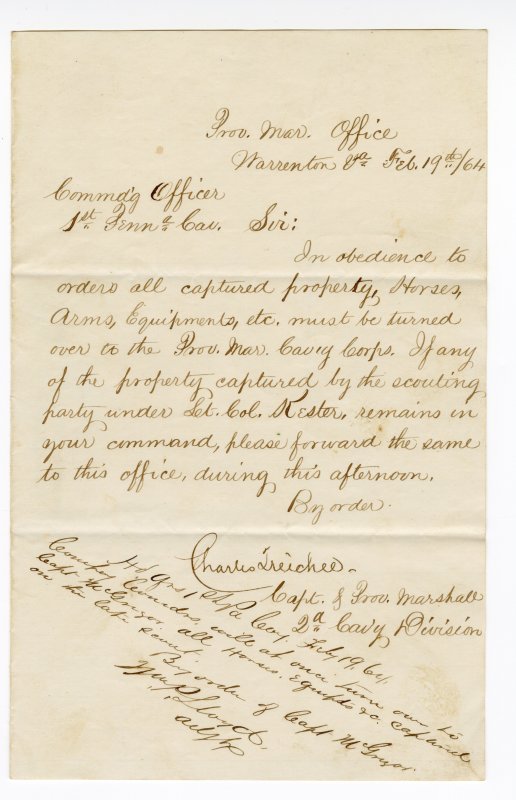 Prov. Mar. Office
Warrenton Va Feb. 19th/64
Commd'g Officer
1st Penna Cav. Sir:
In obedience to
orders all captured property, Horses,
Arms, Equipments, etc. must be turned
over to the Prov. Mar. Cav'y Corps. If any
of the property captured by the scouting
party under Lt. Col. Kester, remains in
your command, please forward the same
to this office, during this afternoon.
By order.
Charles Treichel
Capt. & Prov. Marshall
2d Cav'y Division
Hd Qrs 1st Pa Cav, Feby 19, 64
Company Comdrs, will at once turn over to
Capt McGregor all Horses, Equipts &c. captured
on the late scout.
By order of Capt McGregor.
Wm P. Lloyd,